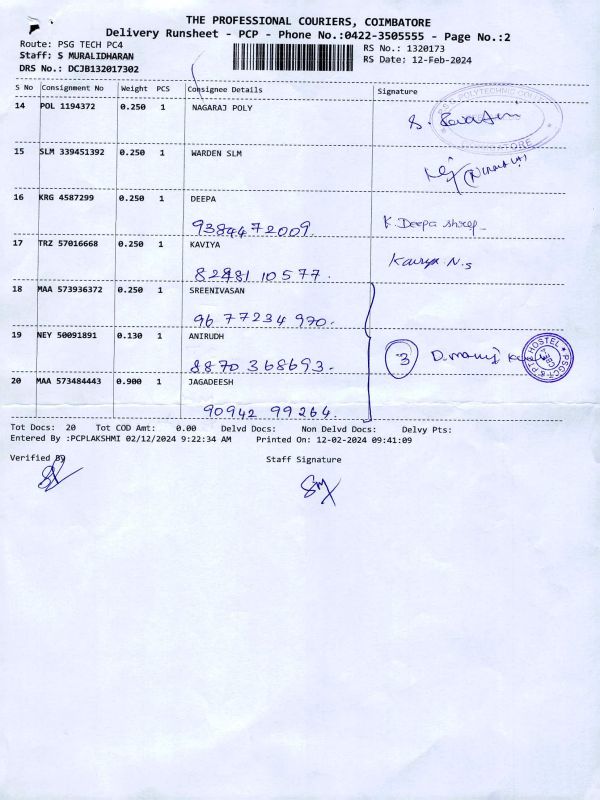 THE PROFESSIONAL COURIERS, COIMBATORE
Delivery Runsheet - PCP - Phone No.:0422-3505555 - Page No.:2
Route: PSG TECH PC4
RS No.: 1320173
Staff: S MURALIDHARAN
RS Date: 12-Feb-2024
DRS No.: DCJB132017302
S No Consignment No Weight PCS Consignee Details Signature
14 POL 1194372 0.250 1 NAGARAJ POLY
STORE
15 SLM 339451392 0.250 1 WARDEN SLM
16 KRG 4587299 0.250 1 DEEPA
9384472009. K. Deepa shree
17 TRZ 57016668 0.250 1 KAVIYA
Kaviya N.S
82481 10577.
18 MAA 573936372 0.250 1 SREENIVASAN
96 77234 970.
19 NEY 50091891 0.130 1 ANIRUDH
3 D. manoj
8870 368693.
20 MAA 573484443 0.900 1 JAGADEESH
90942 99264.
Tot Docs: 20 Tot COD Amt: 0.00 Delvd Docs: Non Delvd Docs: Delvy Pts:
Entered By :PCPLAKSHMI 02/12/2024 9:22:34 AM Printed On: 12-02-2024 09:41:09
Verified By Staff Signature